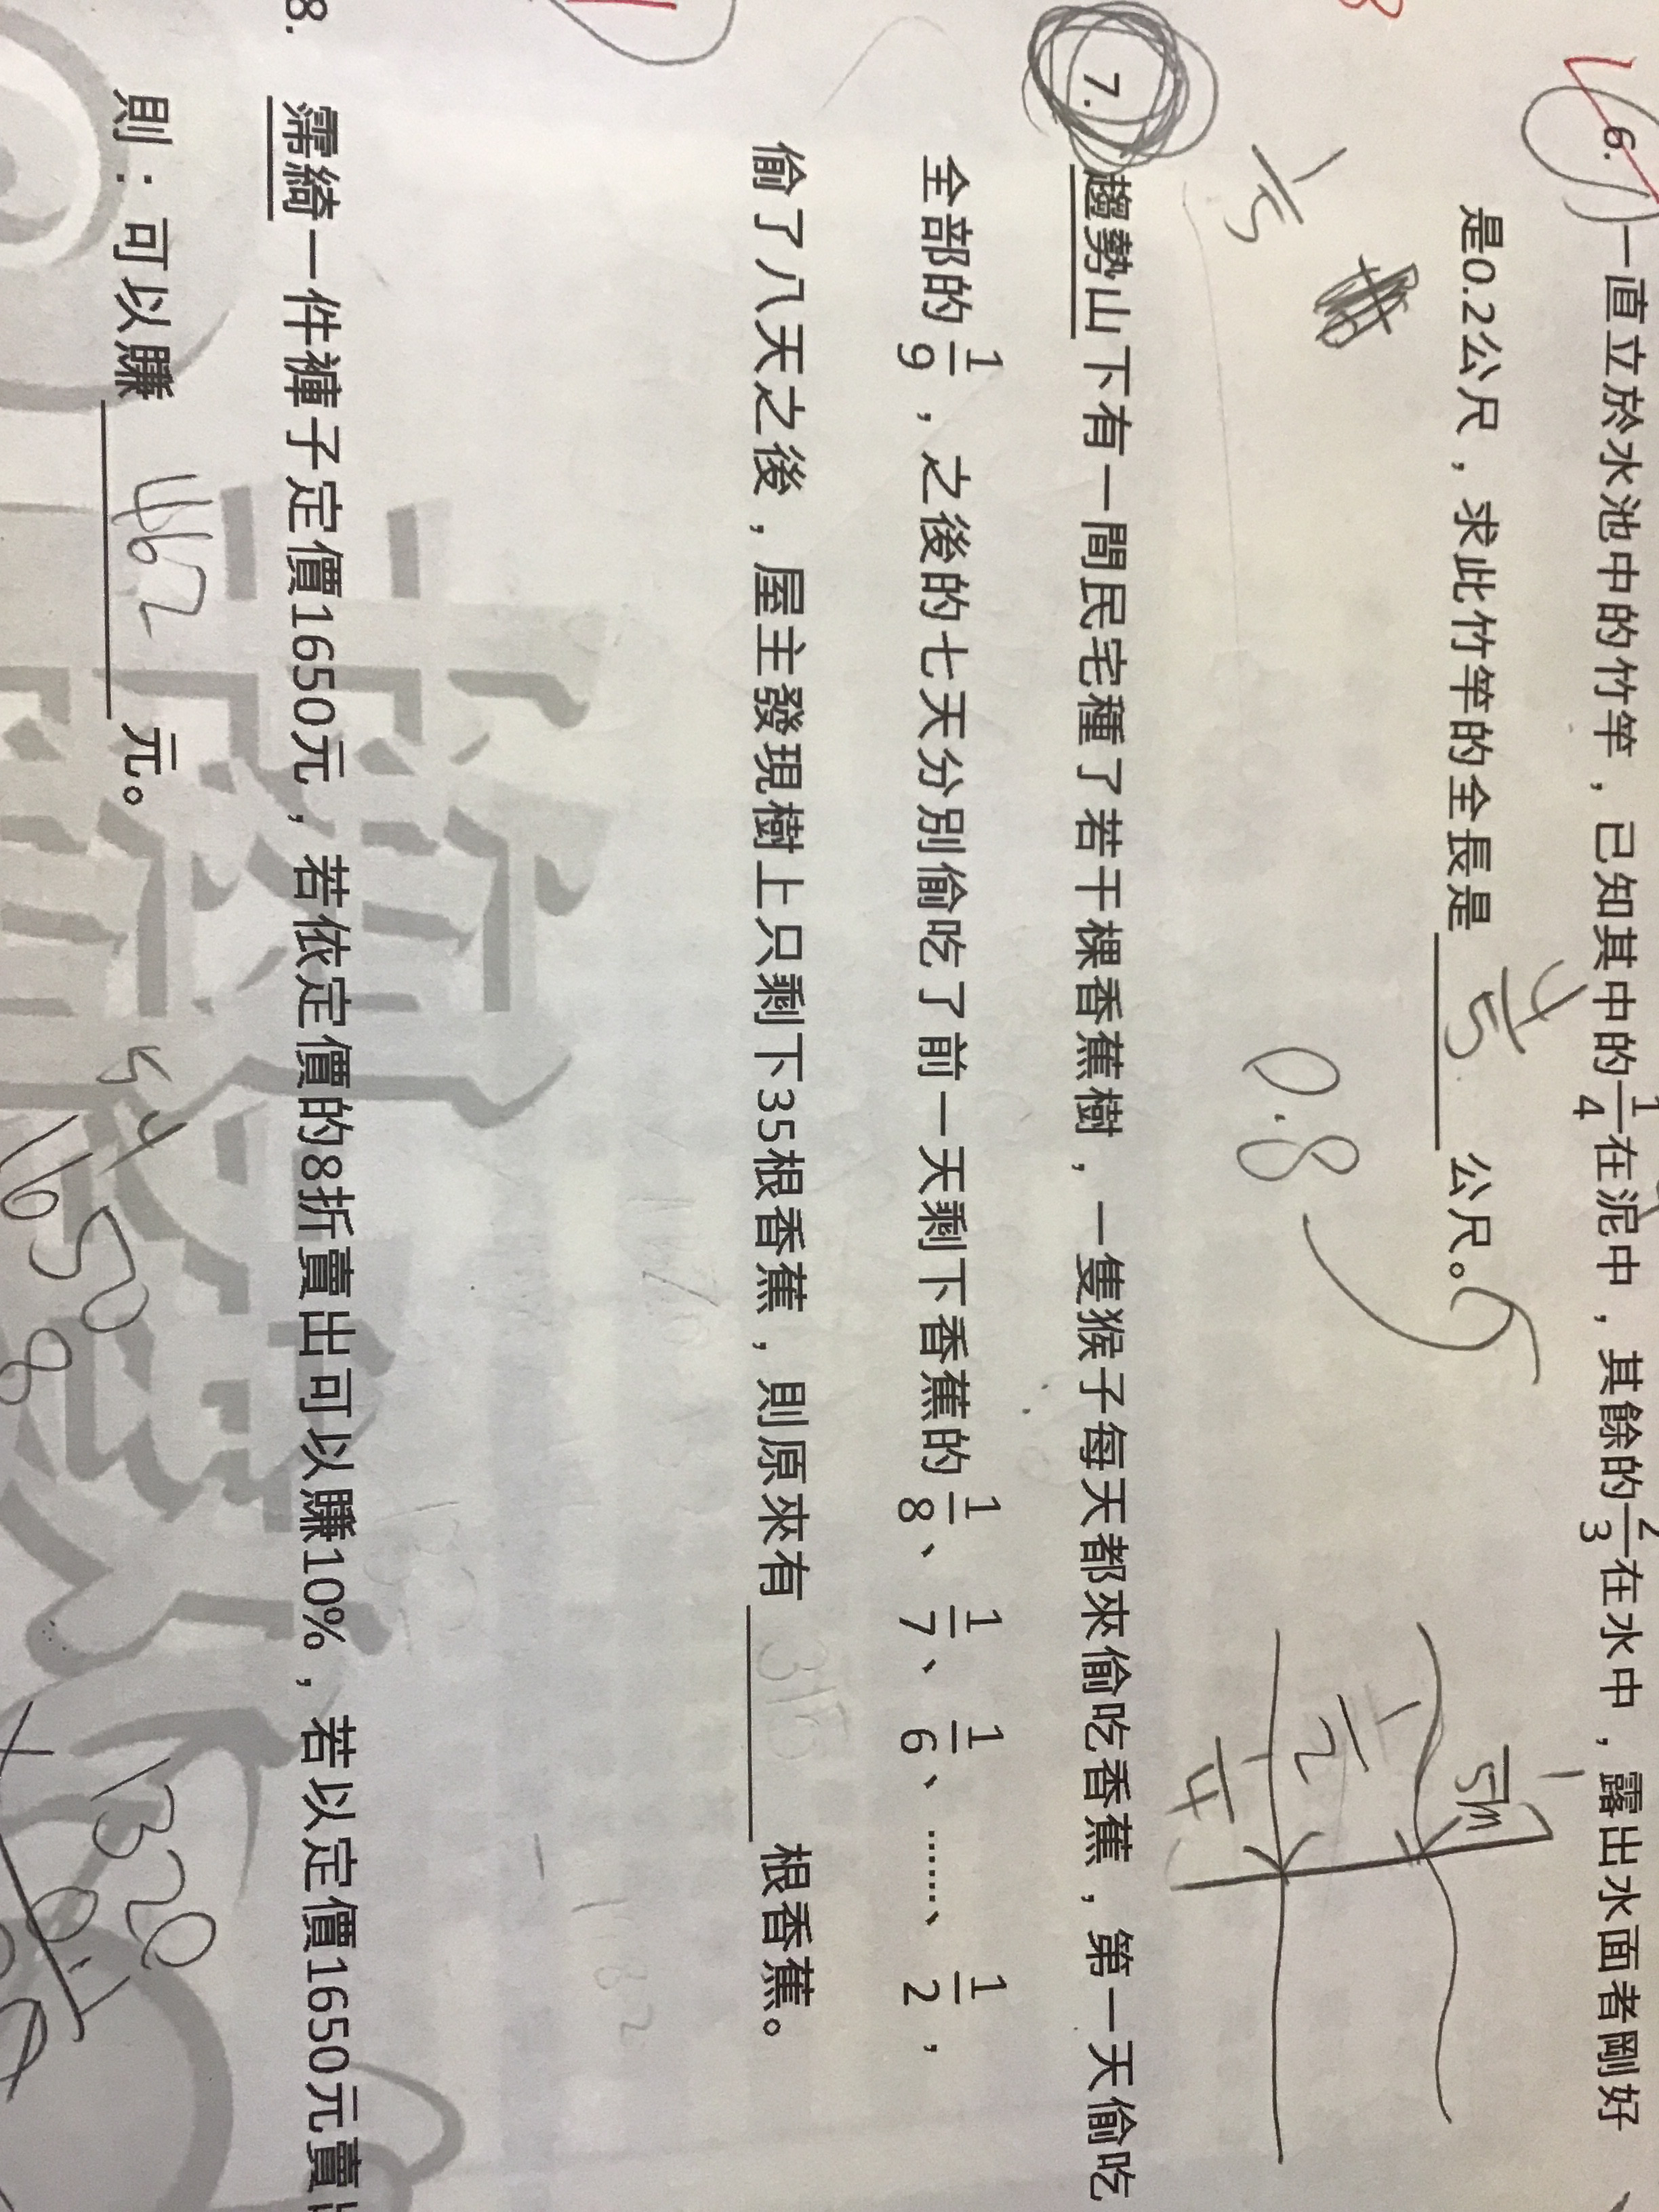 6. 一直立於水池中的竹竿，已知其中的1/4在泥中，其餘的2/3在水中，露出水面者剛好
是0.2公尺，求此竹竿的全長是 4/5 公尺。
1/5
0.8
1/5m
1/2
1/4
7. 趨勢山下有一間民宅種了若干棵香蕉樹，一隻猴子每天都來偷吃香蕉，第一天偷吃
全部的1/9，之後的七天分別偷吃了前一天剩下香蕉的1/8、1/7、1/6、……、1/2，
偷了八天之後，屋主發現樹上只剩下35根香蕉，則原來有 315 根香蕉。
8. 霈綺一件褲子定價1650元，若依定價的8折賣出可以賺10%，若以定價1650元賣
則：可以賺 462 元。
5 4
1650
8
1320